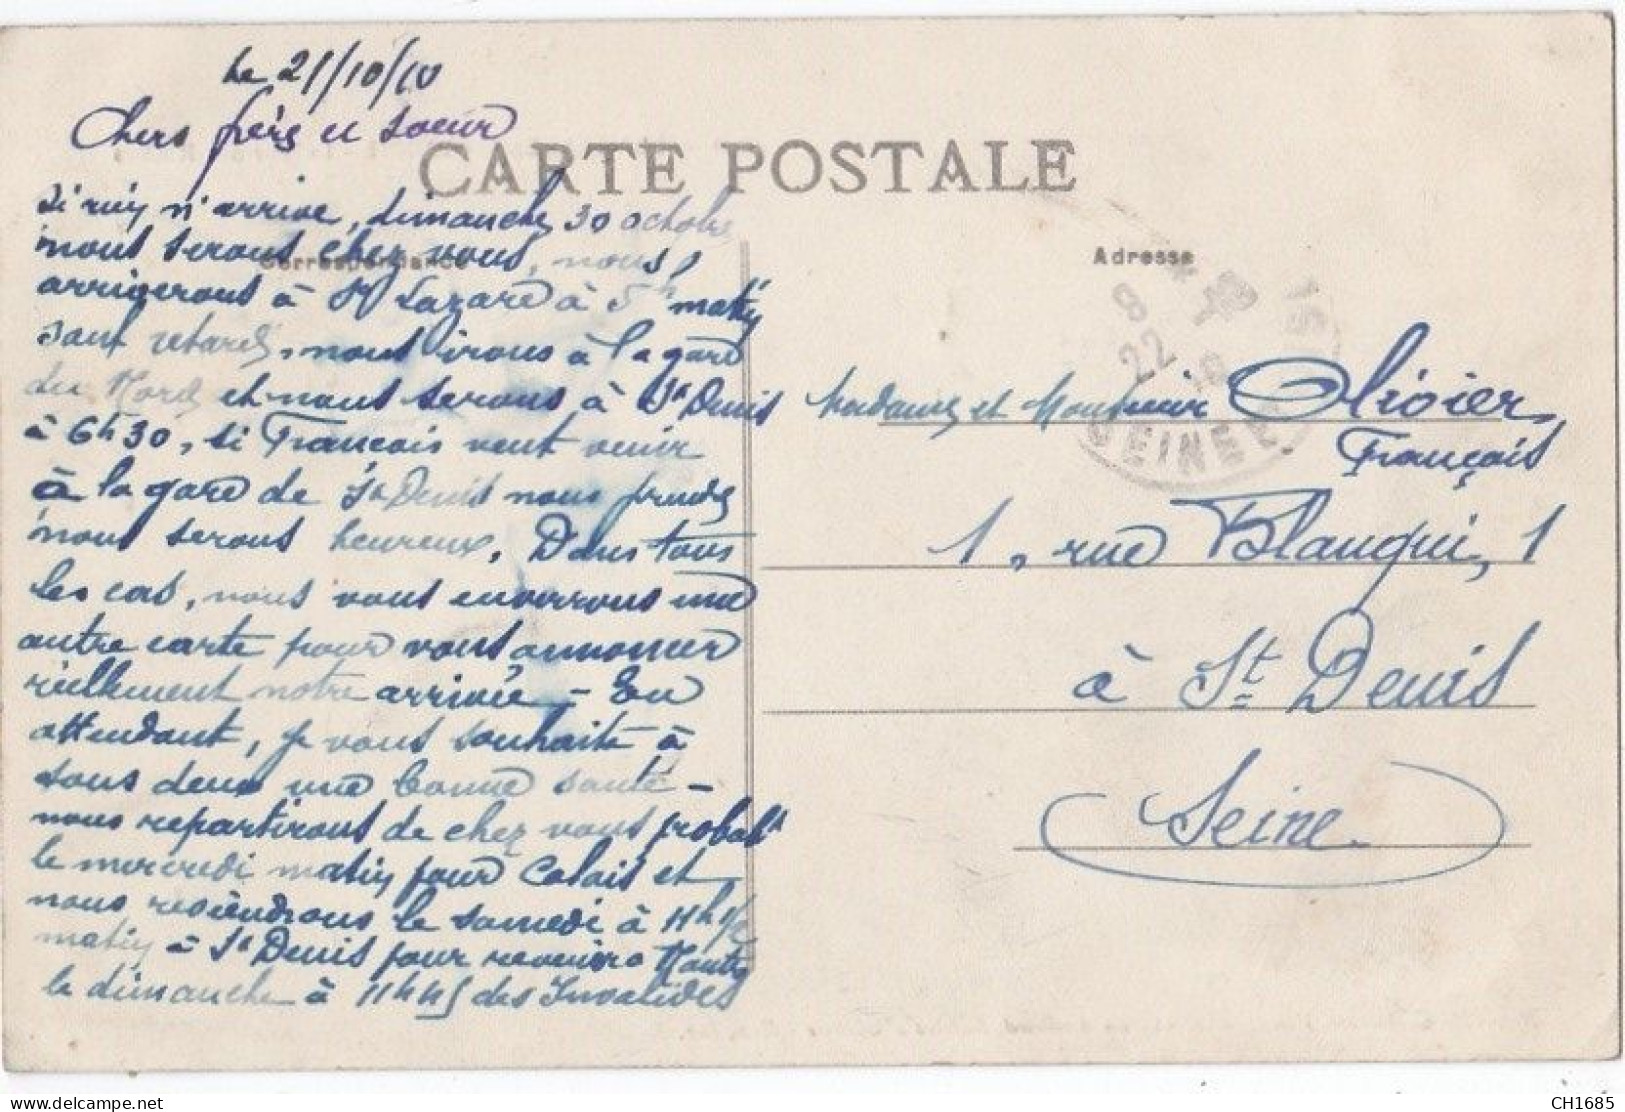 le 21/10/10
Chers frère et soeur
CARTE POSTALE
Si rien n'arrive, dimanche 30 octobre
nous serons chez vous, nous
Correspondance
arriverons à St Lazare à 5h matin
sauf retard, nous irons à la gare
du Nord et nous serons à St Denis
à 6h30, si François veut venir
à la gare de St Denis nous prendre
nous serons heureux, Dans tous
les cas, nous vous enverrons une
autre carte pour vous annoncer
réellement notre arrivée - En
attendant, je vous souhaite à
tous deux une bonne santé -
nous repartirons de chez vous probabt
le mercredi matin pour Calais et
nous reviendrons le samedi à 11h 1/2
matin à St Denis pour revenir à Nantes
le dimanche à 11h45 des Invalides
Adresse
8 *
22 10
SEINE
Madame et Monsieur Olivier
François
1, rue Blanqui, 1
à St Denis
Seine
CH1685